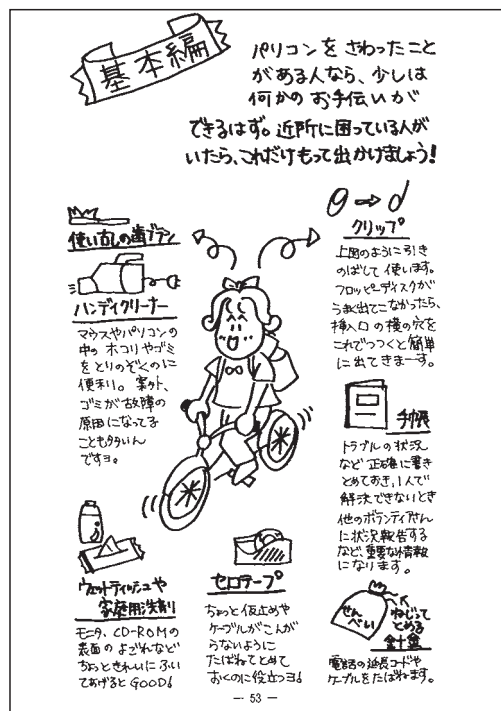 基本編
パソコンを さわったこと
がある人なら、少しは
何かの お手伝いが
できるはず。近所に困っている人が
いたら、これだけもって出かけましょう!
使い古しの歯ブラシ
ハンディクリーナー
マウスやパソコンの
中の ホコリやゴミ
をとりのぞくのに
便利。案外、
ゴミが故障の
原因になってる
ことも多いん
ですヨ。
クリップ
上図のように引き
のばして 使います。
フロッピーディスクが
うまく出てこなかったら、
挿入口の横の穴を
これでつつくと簡単
に出てきまーす。
手帳
トラブルの状況
など正確に書き
とめておき、1人で
解決できないとき
他のボランティアさん
に状況報告する
など重要な情報
になります。
ウェットティッシュや
家庭用洗剤
モニタ、CD-ROMの
表面のよごれなど
ちょっときれいにふい
てあげるとGOOD!
セロテープ
ちょっと仮止めや
ケーブルがこんが
らないように
たばねてとめて
おくのに役立つヨ!
せんべい
ねじって
とめる
針金
電話の延長コードや
ケーブルをたばねます。
— 53 —